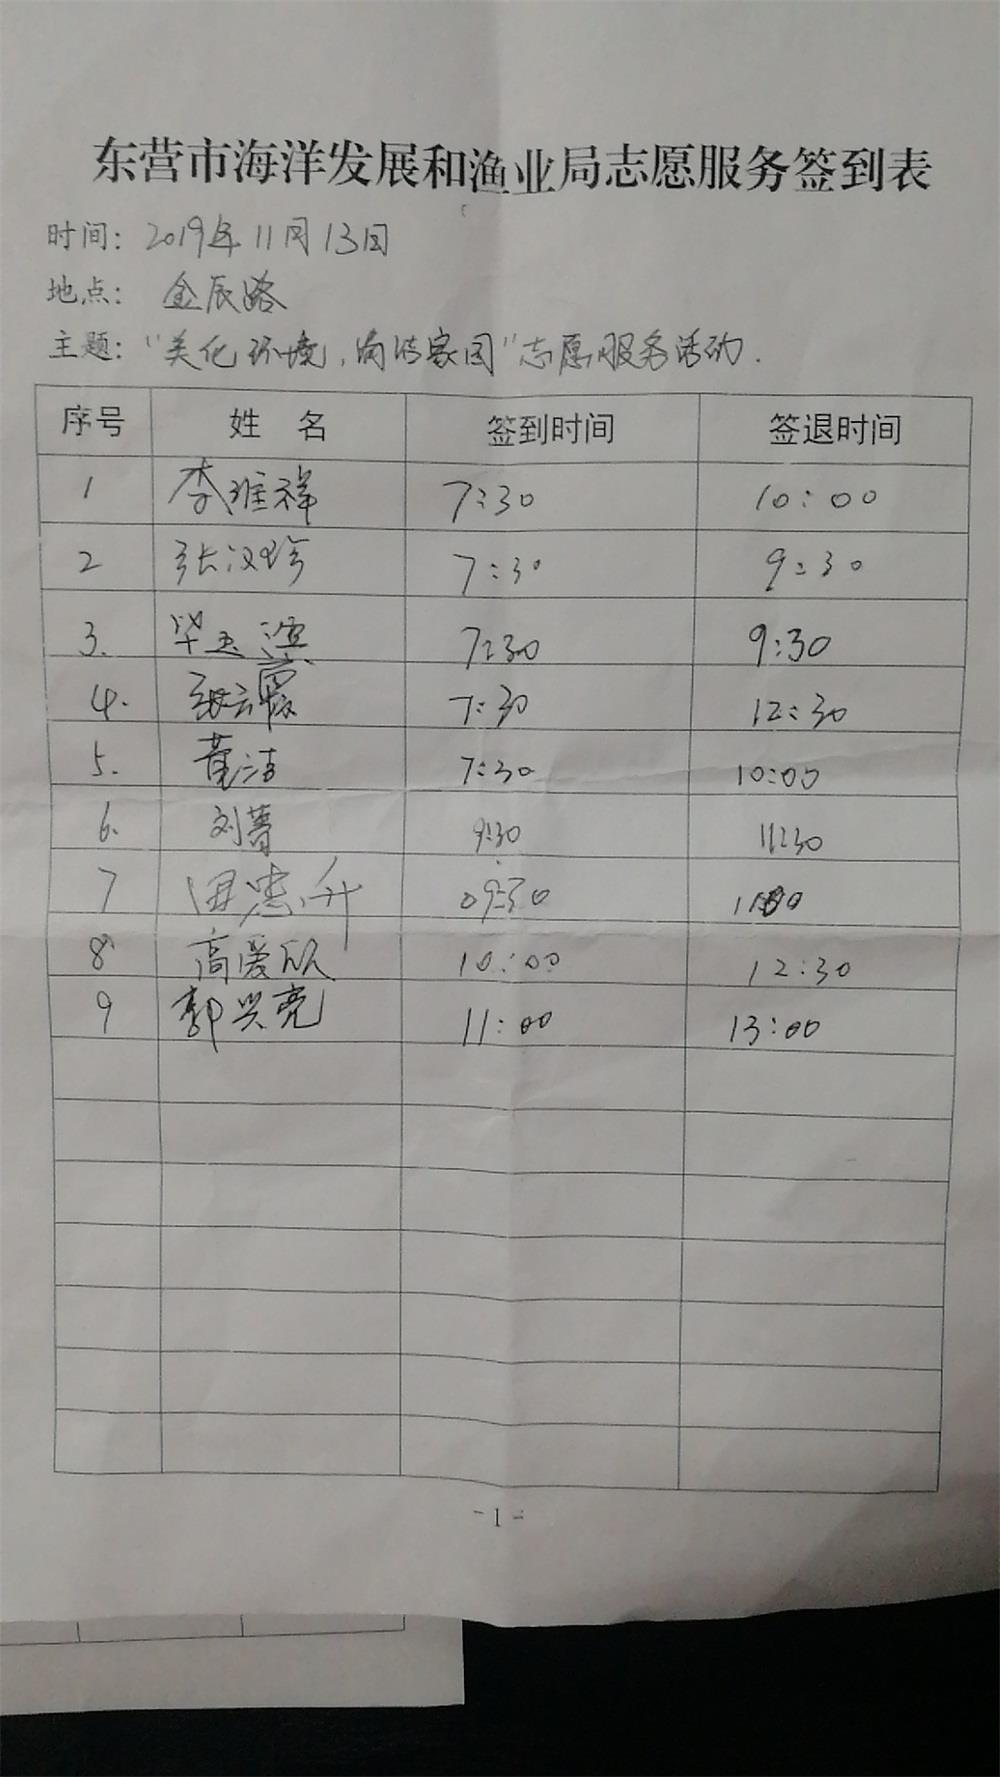 东营市海洋发展和渔业局志愿服务签到表
时间：2019年11月13日
地点：金辰路
主题：“美化环境，清洁家园”志愿服务活动.
序号 姓 名 签到时间 签退时间
1 李维祥 7:30 10:00
2 张汉珍 7:30 9:30
3. 毕玉滨 7:30 9:30
4. 张云霞 7:30 12:30
5. 董洁 7:30 10:00
6. 刘菁 9:30 11:30
7 田惠升 09:30
8 高爱欣 10:00 12:30
9 郭兴亮 11:00 13:00
-1-